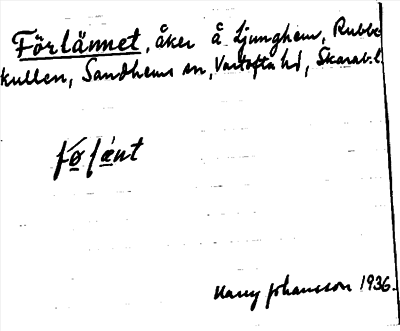 Förlännet, åker å Ljunghem, Rubbe
kullen, Sandhems sn, Vartofta hd, Skarab.l.
Harry Johansson 1936.